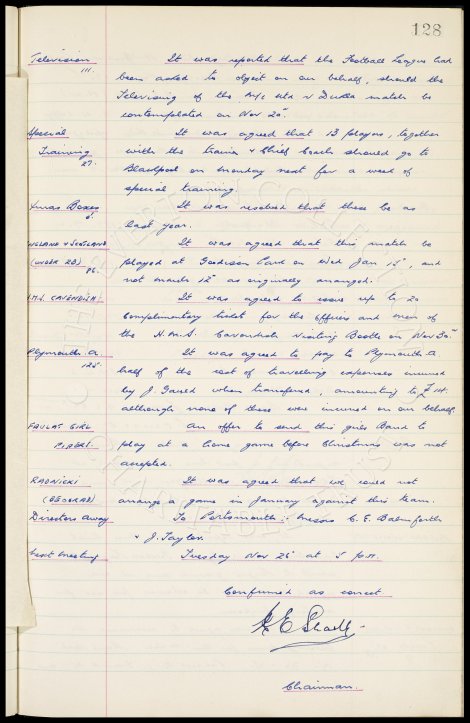 128
Television
111.
It was reported that the Football League had
been asked to object on our behalf, should the
Televising of the M/c Utd v Dukla match be
contemplated on Nov 20th
Special
Training
27.
It was agreed that 13 players, together
with the trainer & Chief Coach should go to
Blackpool on Monday next for a week of
special training.
Xmas Boxes
It was resolved that these be as
last year.
England v Scotland
(under 23)
96.
It was agreed that this match be
played at Goodison Park on Wed Jan 15th, and
not March 12th as originally arranged.
H.M.S. Cavendish
It was agreed to issue up to 20
complimentary tickets for the officers and men of
the H.M.S. Cavendish visiting Bootle on Nov 30th
Plymouth A.
125.
It was agreed to pay to Plymouth A
half of the cost of travelling expenses incurred
by J. Gauld when transferred, amounting to £14.
although none of these were incurred on our behalf.
Girl
Pipers
An offer to send this girls Band to
play at a home game before Christmas was not
accepted.
Radnicki
(Beograd)
It was agreed that we could not
arrange a game in January against this team.
Directors Away
To Portsmouth :- Messrs C. E. Balmforth
& J. Taylor.
Next Meeting
Tuesday Nov 26th at 5 p.m.
Confirmed as correct
Chairman.
THE EVERTON COLLECTION
CHARITABLE TRUST